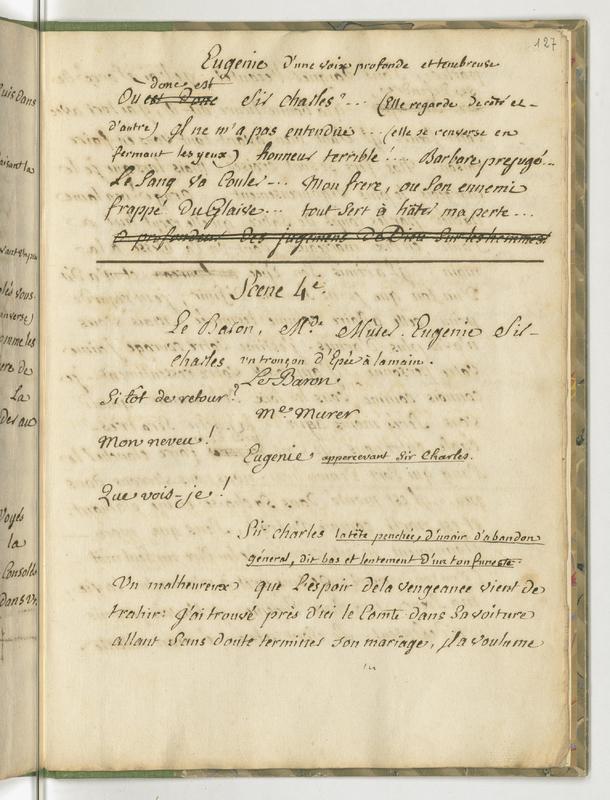 127
Eugenie d'une voix profonde et tenebreuse
donc est
Où est donc Sir Charles? ... (Elle regarde de côté et
d'autre) Il ne m'a pas entendue ... (elle se renverse en
fermant les yeux) honneur terrible! ... Barbare préjugé...
Le Sang va Couler ... Mon frere, ou Son ennemi
frappé Du Glaive ... tout Sert à hâter ma perte ...
O profondeur des jugemens de Dieu Sur les hommes!
Scene 4e.
Le Baron, Mde Murer. Eugenie Sir
Charles, un tronçon d'Epée à la main.
Le Baron
Si tôt de retour?
Me Murer
Mon neveu!
Eugenie appercevant Sir Charles.
Que vois-je!
Sir Charles la tête penchée, d'un air d'abandon
général, dit bas et lentement d'un ton funeste.
Un malheureux que l'espoir de la vengeance vient de
trahir: J'ai trouvé près d'ici le Comte dans Sa voiture
allant Sans doute terminer son mariage, il a voulu me